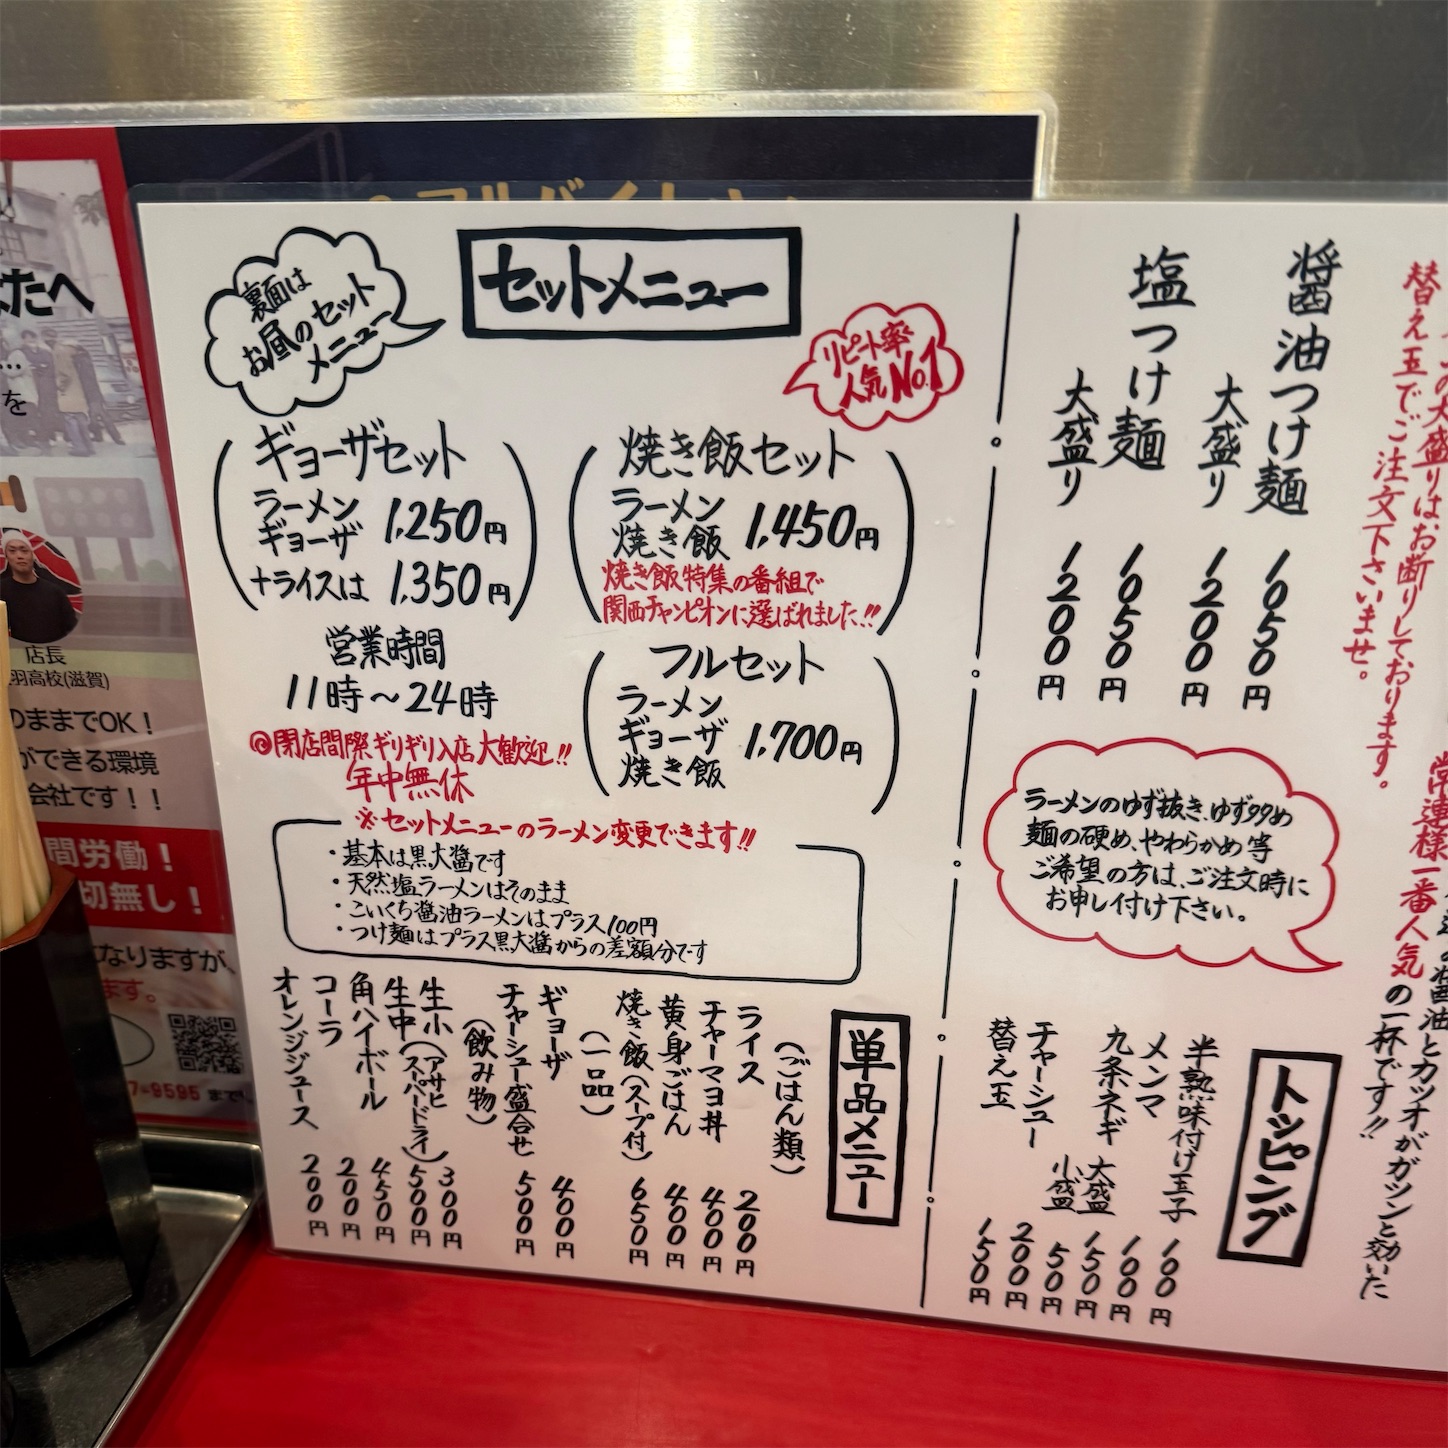 裏面は
お昼のセット
メニュー
セットメニュー
リピート率
人気No.1
ギョーザセット
ラーメン
ギョーザ
1,250円
+ライスは 1,350円
焼き飯セット
ラーメン
焼き飯
1,450円
焼き飯特集の番組で
関西チャンピオンに選ばれました!!
営業時間
11時～24時
◎閉店間際ギリギリ入店大歓迎!!
年中無休
フルセット
ラーメン
ギョーザ
焼き飯
1,700円
※セットメニューのラーメン変更できます!!
・基本は黒大醬です
・天然塩ラーメンはそのまま
・こいくち醬油ラーメンはプラス100円
・つけ麺はプラス黒大醬からの差額分です
単品メニュー
(ごはん類)
ライス 200円
チャーマヨ丼 400円
黄身ごはん 400円
焼き飯(スープ付) 650円
(一品)
ギョーザ 400円
チャーシュー盛合せ 500円
(飲み物)
生小(アサヒ 300円
生中(スーパードライ) 500円
角ハイボール 450円
コーラ 200円
オレンジジュース 200円
替え玉でご注文下さいませ。
の大盛りはお断りしております。
醤油つけ麺 1050円
大盛り 1200円
塩つけ麺 1050円
大盛り 1200円
ラーメンのゆず抜き、ゆず多め
麺の硬め、やわらかめ等
ご希望の方は、ご注文時に
お申し付け下さい。
常連様一番人気の一杯です!!
醤油とカツオがガツンと効いた
トッピング
半熟味付け玉子 100円
メンマ 100円
九条ネギ 大盛 150円
小盛 50円
チャーシュー 200円
替え玉 150円
たへ
を
店長
羽高校(滋賀)
のままでOK！
ができる環境
会社です！！
間労働！
切無し！
なりますが、
ます。
7-9595 まで